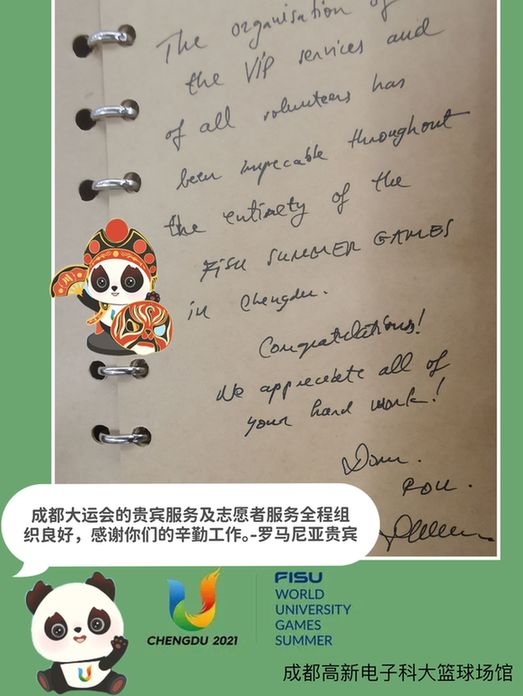 The organisation of
the VIP services and
of all volunteers has
been impecable throughout
the entirety of the
FISU SUMMER GAMES
in Chengdu.
Congratulations!
We appreciate all of
your hard work!
ROU.
成都大运会的贵宾服务及志愿者服务全程组
织良好，感谢你们的辛勤工作。-罗马尼亚贵宾
CHENGDU 2021
FISU
WORLD
UNIVERSITY
GAMES
SUMMER
成都高新电子科大篮球场馆